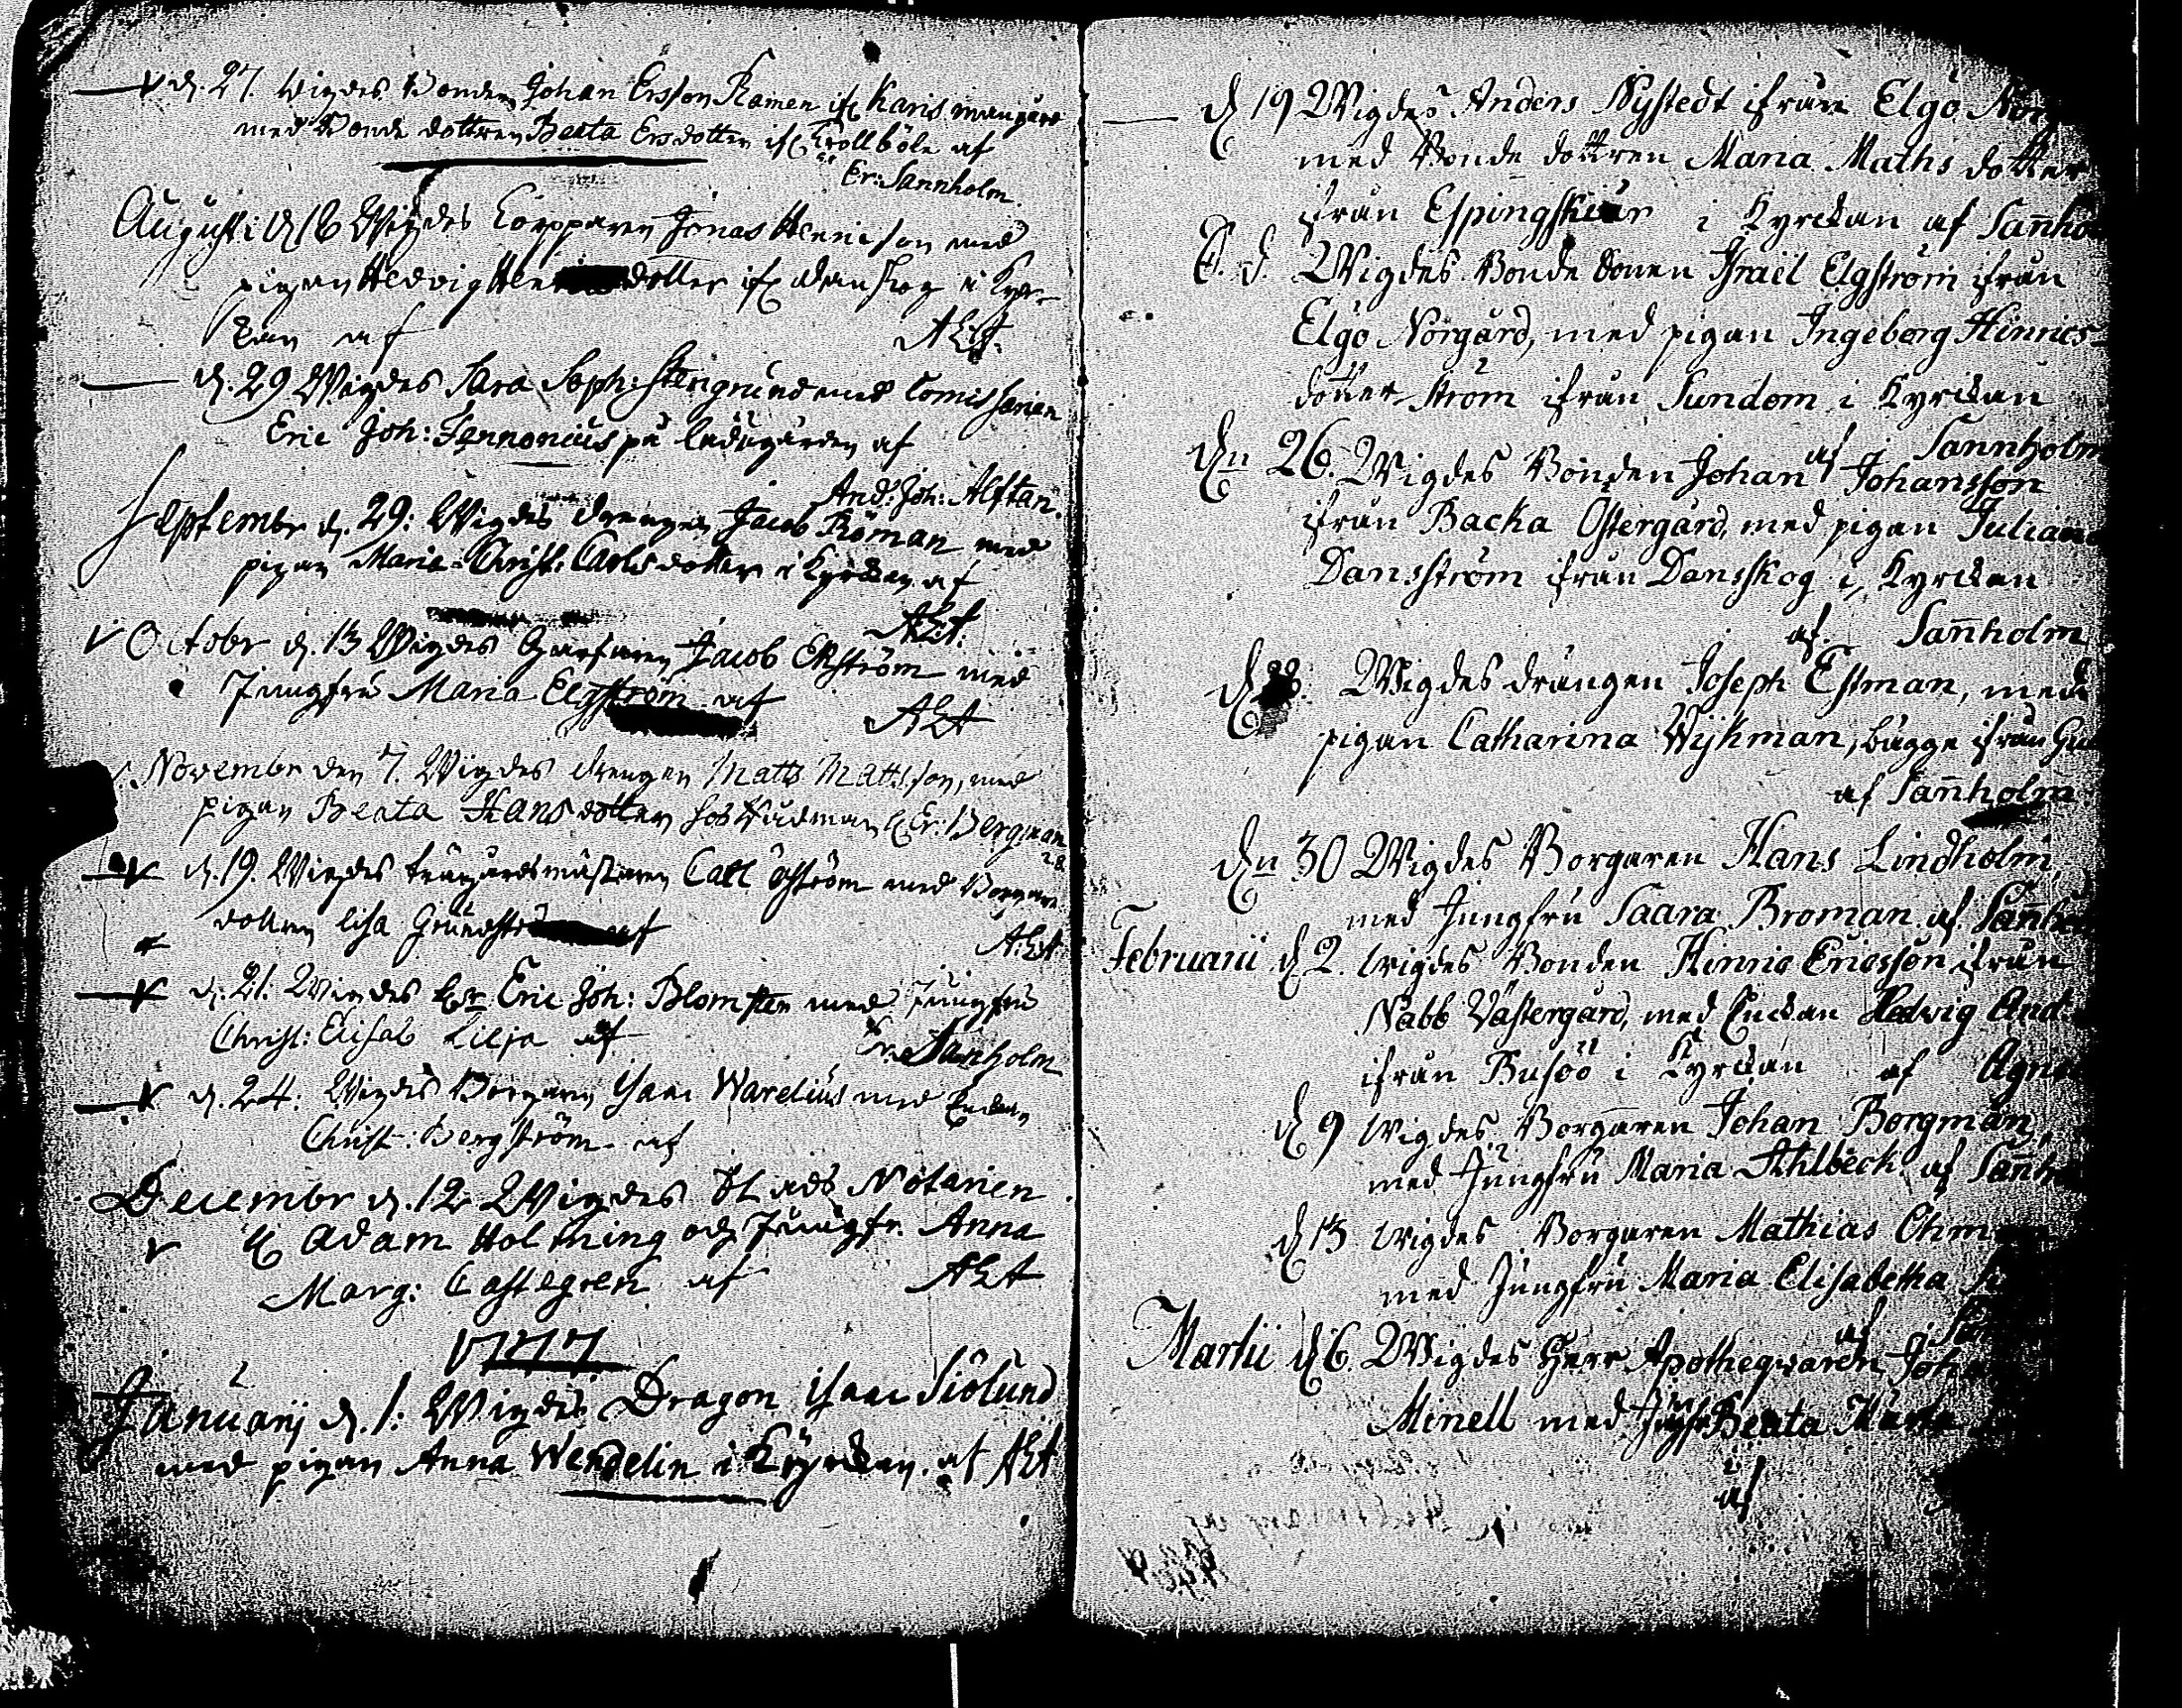 d. 27. Wigdes Bonden Johan Ersson Ramen ifr Karis
med Bonde dottren Beata Ersdotter ifr Trollböle af
Er: Sannholm.
Augusti d 18 Wigdes Corpparen Jonas Henricson med
pigan Hedvig dotter ifr i Kyr-
kan af ALA.
d. 29 Wigdes Sara Soph: Stengrund med Comissarien
Eric Joh: på ladugården af
And: Joh: Alftan.
September d. 29: Wigdes drengen Jacob Röman med
pigan Maria Christ: Carlsdotter i Kyrckan af
ALA.
October d. 13 Wigdes Garfaren Jacob Ekström med
Jungfru Maria Elgström af ALA
Novembr den 7. Wigdes drengen Matts Mattsson, med
pigan Beata Hansdotter hos Er: Bergman
d. 19. Wigdes trägårdsmästaren Carl Öström med Borgare
dottren Lisa af ALA
d. 21: Wigdes Hr Eric Joh: Blomster med Jungfru
Christ: Elisab Lilja af Er. Sanholm
d. 24: Wigdes Borgaren Isaac Warelius med Enkan
Christ: Bergström af
Decembr d. 12 Wigdes Stads Notarien
Adam Holming och Jungfr. Anna
Marg: Castegren af ALA
1777
Januarij d. 1: Wigdes Dragon Isaac Siölund
med pigan Anna Wendelin i Kyrckan af ALA
d 19 Wigdes Anders Nystedt ifrån Elgö
med Bonde dottren Maria Maths dotter
ifrån Espingskiär i Kyrckan af
S. d. Wigdes Bonde Sonen Israel Elgström ifrån
Elgö Norgård, med pigan Ingeborg Hinrics-
dotter Ström ifrån Sundom i Kyrckan
af Sannholm
dn 26. Wigdes Bonden Johan Johansson
ifrån Backa Östergård, med pigan
Dansström ifrån Dansskog i Kyrckan
af. Sanholm
d 28. Wigdes drängen Joseph Estman, med
pigan Catharina Wijkman, bägge ifrån
af Sanholm
dn 30 Wigdes Borgaren Hans Lindholm,
med Jungfru Saara Broman af
Februarii d 2. Wigdes Bonden Hinric Ericsson ifrån
Nabb Västergård, med Enckan Hedvig
ifrån Busöö i Kyrckan af
d 9 Wigdes Borgaren Johan Borgman,
med Jungfru Maria Ahlbeck af
d 13 Wigdes Borgaren Mathias
med Jungfru Maria Elisabetha
af
Martii d 6. Wigdes Herr Apothequaren
Minell med Jungfr Beata
af